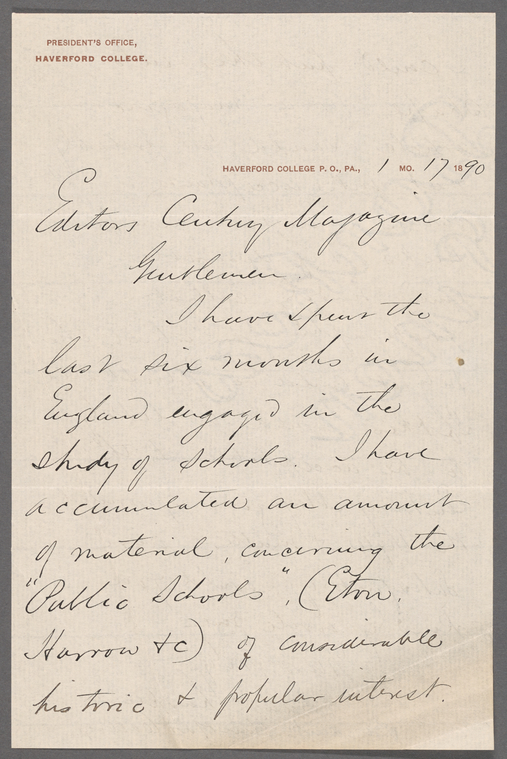 PRESIDENT'S OFFICE,
HAVERFORD COLLEGE.
HAVERFORD COLLEGE P. O., PA., 1 MO. 17 1890
Editors Century Magazine
Gentlemen.
I have spent the
last six months in
England engaged in the
study of schools. I have
accumulated an amount
of material, concerning the
"Public Schools", (Eton,
Harrow &c) of considerable
historic & popular interest.